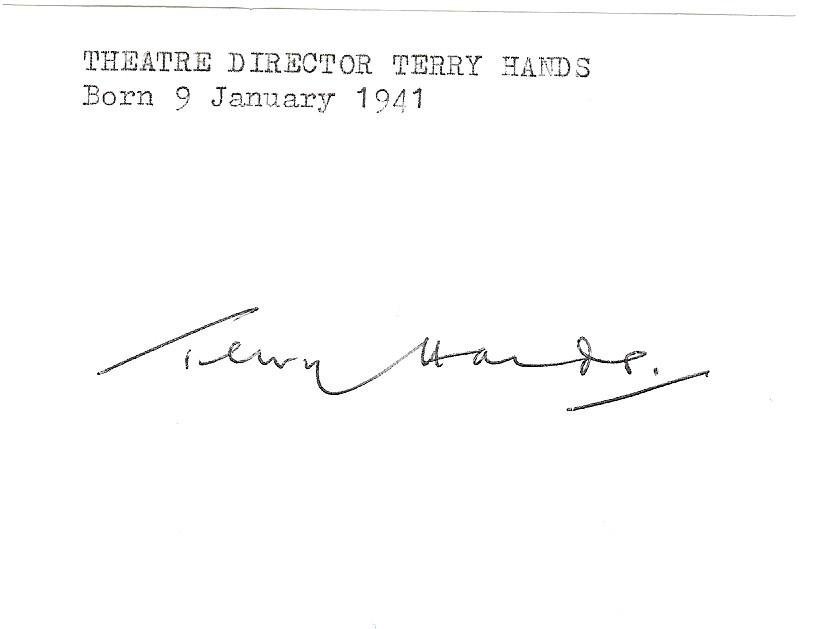 THEATRE DIRECTOR TERRY HANDS
Born 9 January 1941
Terry Hands.